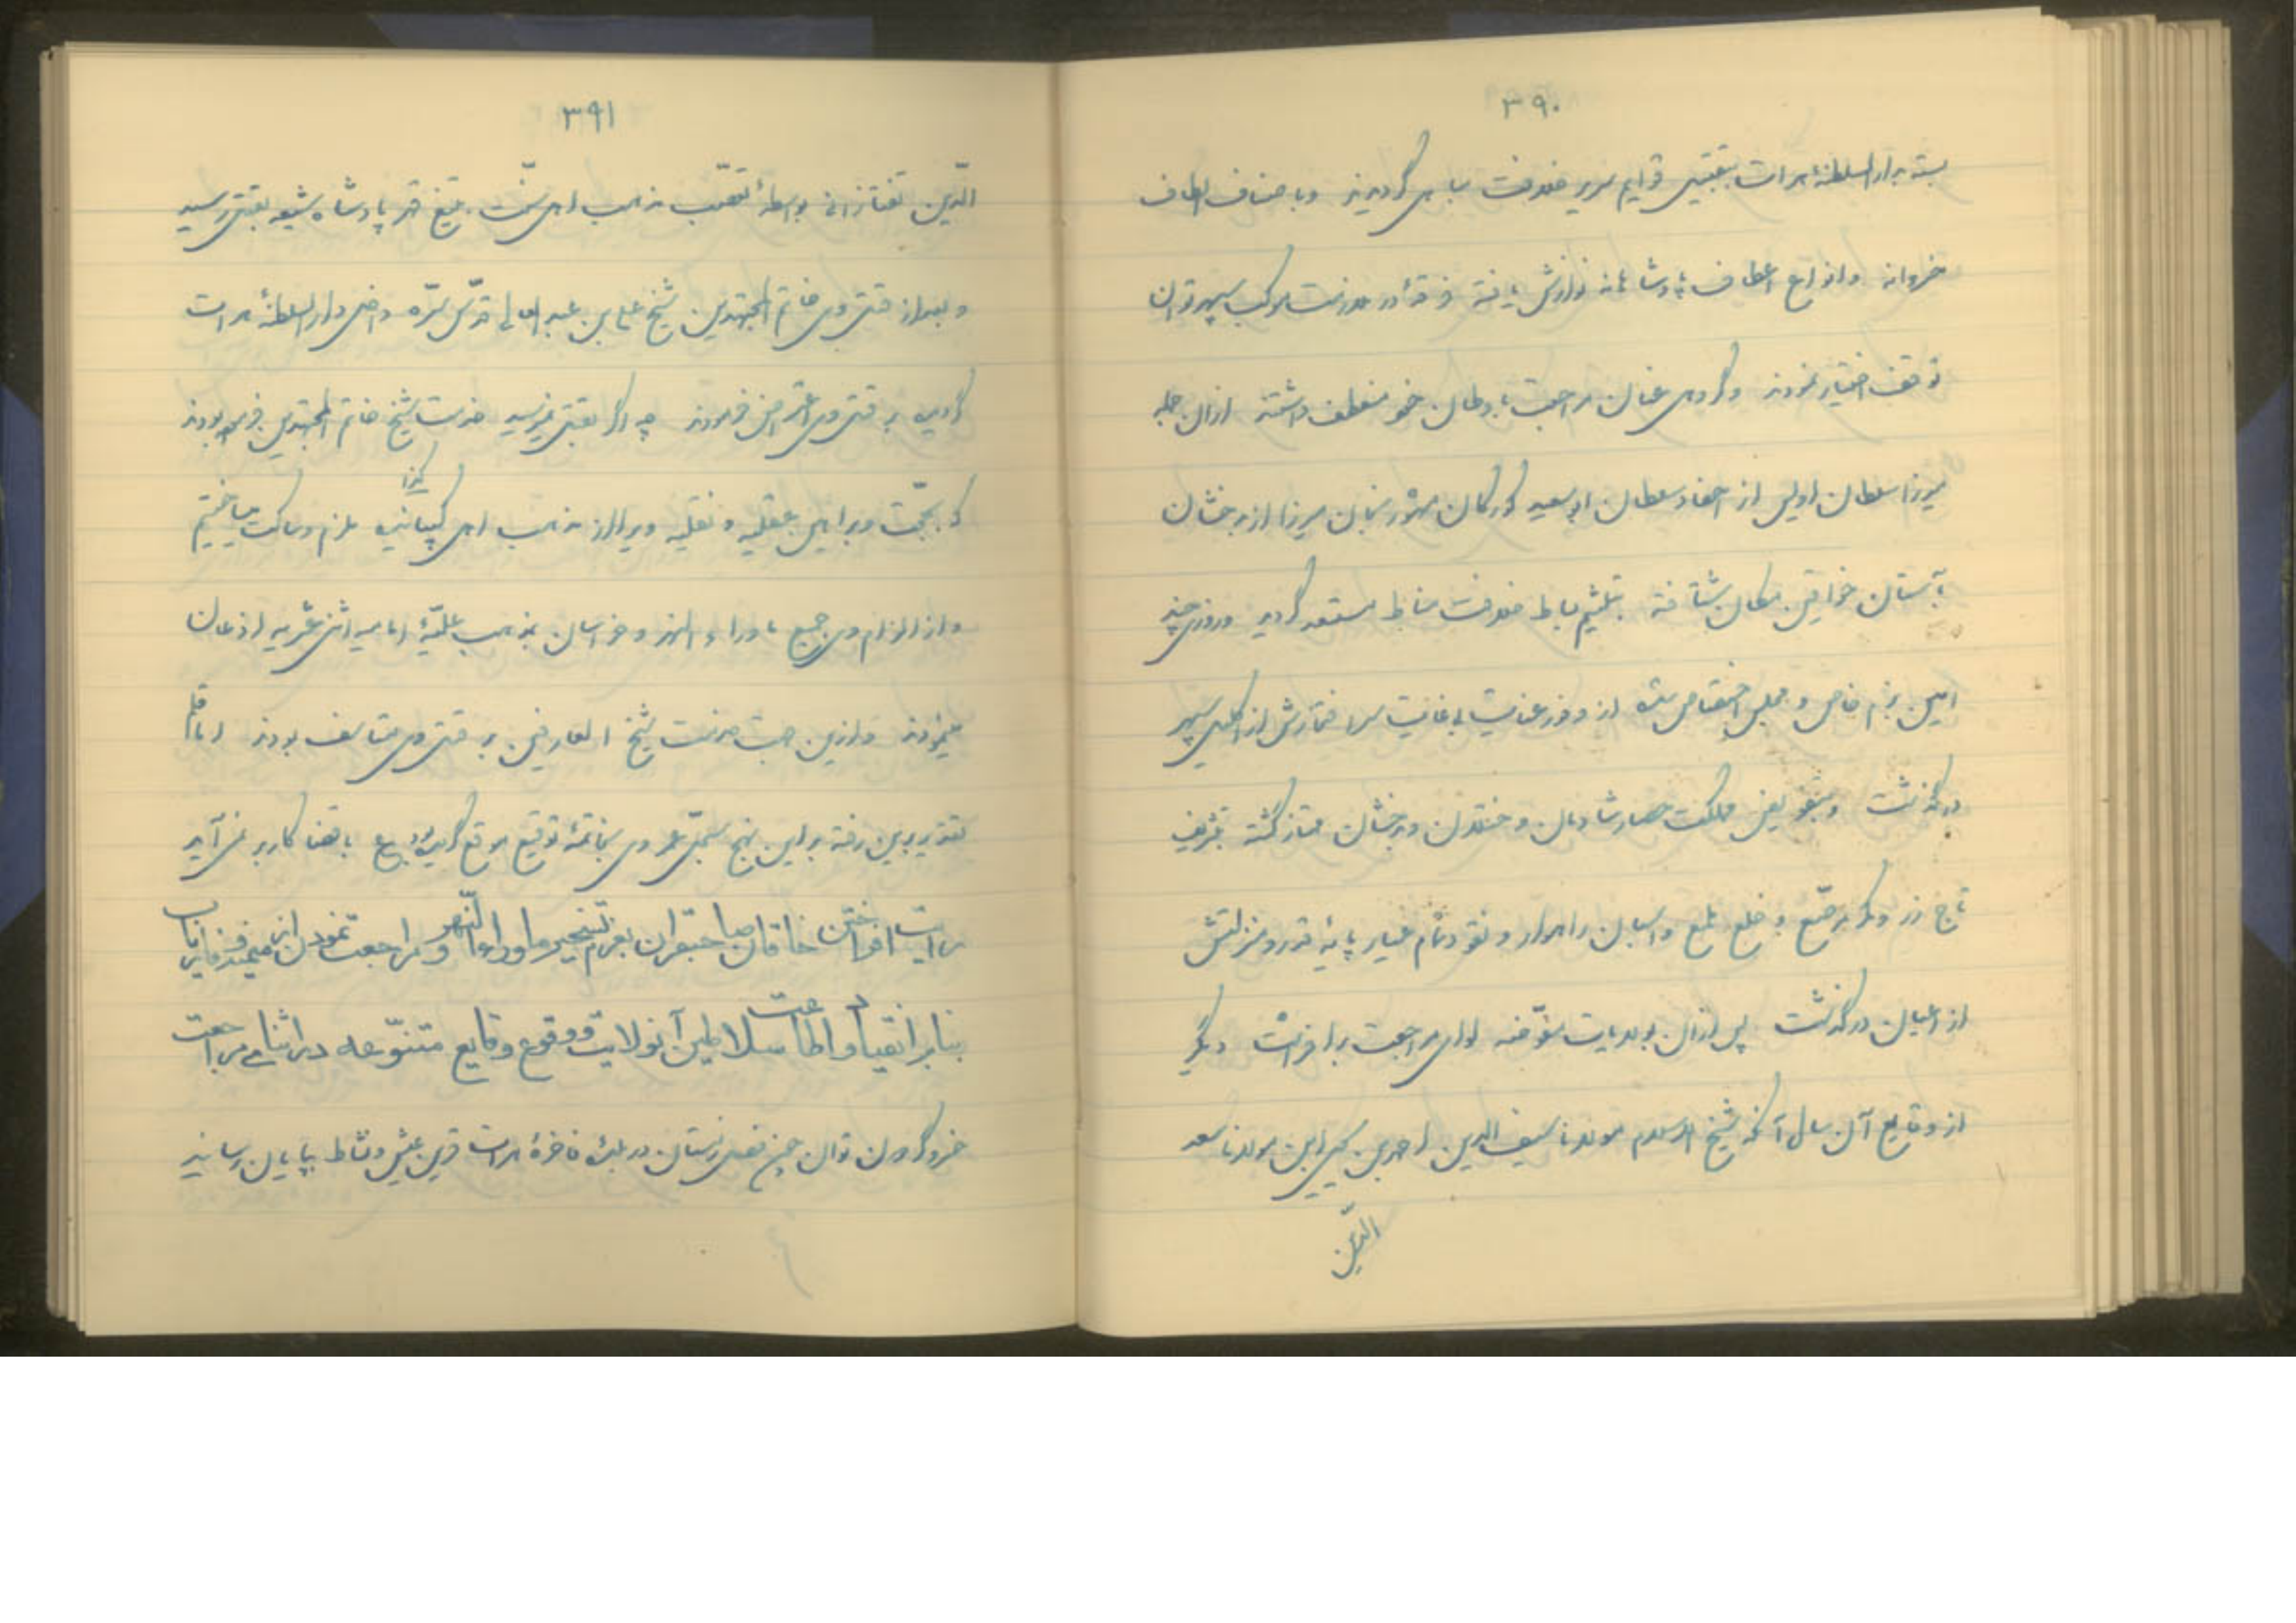 ۳۹۰
بسته بدار السلطنهٔ هرات بتقبیل قوایم سریر خلافت مباهی گردیدند و باصناف الطاف
خسروانه و انواع اعطاف پادشاهانه نوازش یافته فرقهٔ در ملازمت موکب سپهر توان
توقف اختیار نمودند و گروهی عنان مراجعت باوطان خود منعطف داشتند از آن جمله
میرزا سلطان اویس از احفاد سلطان ابوسعید کورکان مشهور بخان میرزا از بدخشان
بآستان خواقین مکان شتافته بتلثیم بساط خلافت مناط مستسعد گردید و روزی چند
انیس بزم خاص و مجلس اختصاص شده از وفور عنایت بی غایت سر افتخارش از اکلیل سپهر
در گذشت و بتفویض مملکت حصار شادمان و ختلان و بدخشان ممتاز گشته بتشریف
تاج زر و کمر مرصّع و خلع ملمع و اسبان راهوار و نقود تمام عیار پایهٔ قدر و منزلتش
از اعیان در گذشت پس از آن بولایات مفوّضه لوای مراجعت برافراشت دیگر
از وقایع آن سال آنکه شیخ الاسلام مولانا سیف الدین احمد بن یحیی ابن مولانا سعد
الدّین
۳۹۱
الدّین تفتازانی بواسطهٔ تعصّب مذهب اهل سنّت بتیغ قهر پادشاه شیعه بقتل رسید
و بعد از قتل وی خاتم المجتهدین شیخ علی بن عبد العالی قدّس سرّه داخل دار السلطنهٔ هرات
گردید بر قتل وی اعتراض فرمودند چه اگر بقتل نمیرسید حضرت شیخ خاتم المجتهدین فرموده بودند
که بحجّت و براهین عقلیه و نقلیه ویرا از مذهب اهل کذا ملزم و ساکت میساختیم
و از الزام وی جمیع ماوراء النهر و خراسان بمذهب علیّهٔ امامیه اثنی عشریه اذعان
مینمودند و ازین جهت حضرت شیخ العارفین بر قتل وی متأسف بودند اما قلم
تقدیر برین رفته بر این نهج سجلّ عمر وی بخاتمهٔ توقیع موقع گردیده بود ع با قضا کار بر نمی آید
رایت افراختن خاقان صاحبقران بعزم تسخیر ماوراء النّهر و مراجعت نمودن از میمنه و فاریاب
بنابر انقیاد و اطاعت سلاطین آنولایت و وقوع وقایع متنوّعه در اثنای مراجعت
خسرو گردون توان چون فصل زمستان در بلدهٔ فاخرهٔ هرات قرین عیش و نشاط بپایان رسانید